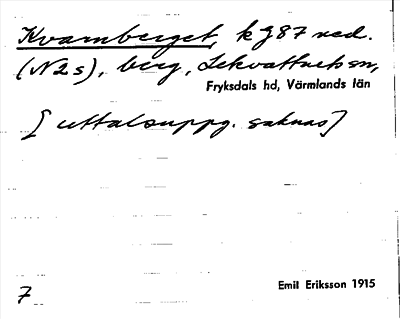 Kvarnberget, k J 87 ned.
(N2s), berg, Lekvattnets sn,
Fryksdals hd, Värmlands län
[uttalsuppg. saknas]
Emil Eriksson 1915
7